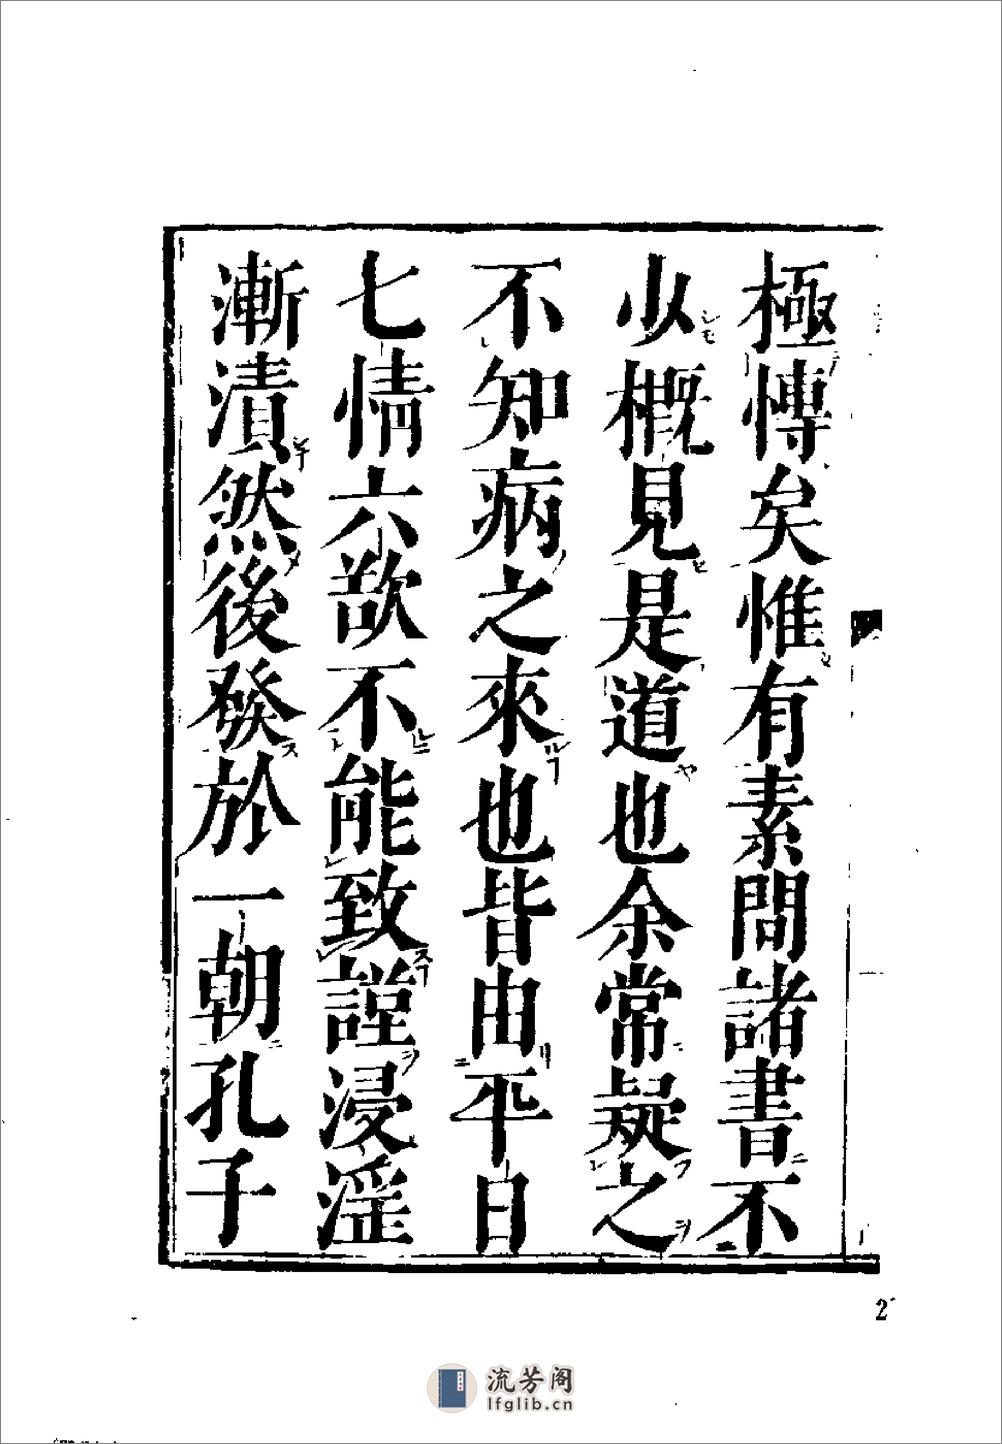 極慱矣惟有素問諸書不
少概見是道也余常疑之
不知病之來也皆由平日
七情六欲不能致謹浸淫
漸漬然後發於一朝孔子
2
流芳阁
lfglib.cn